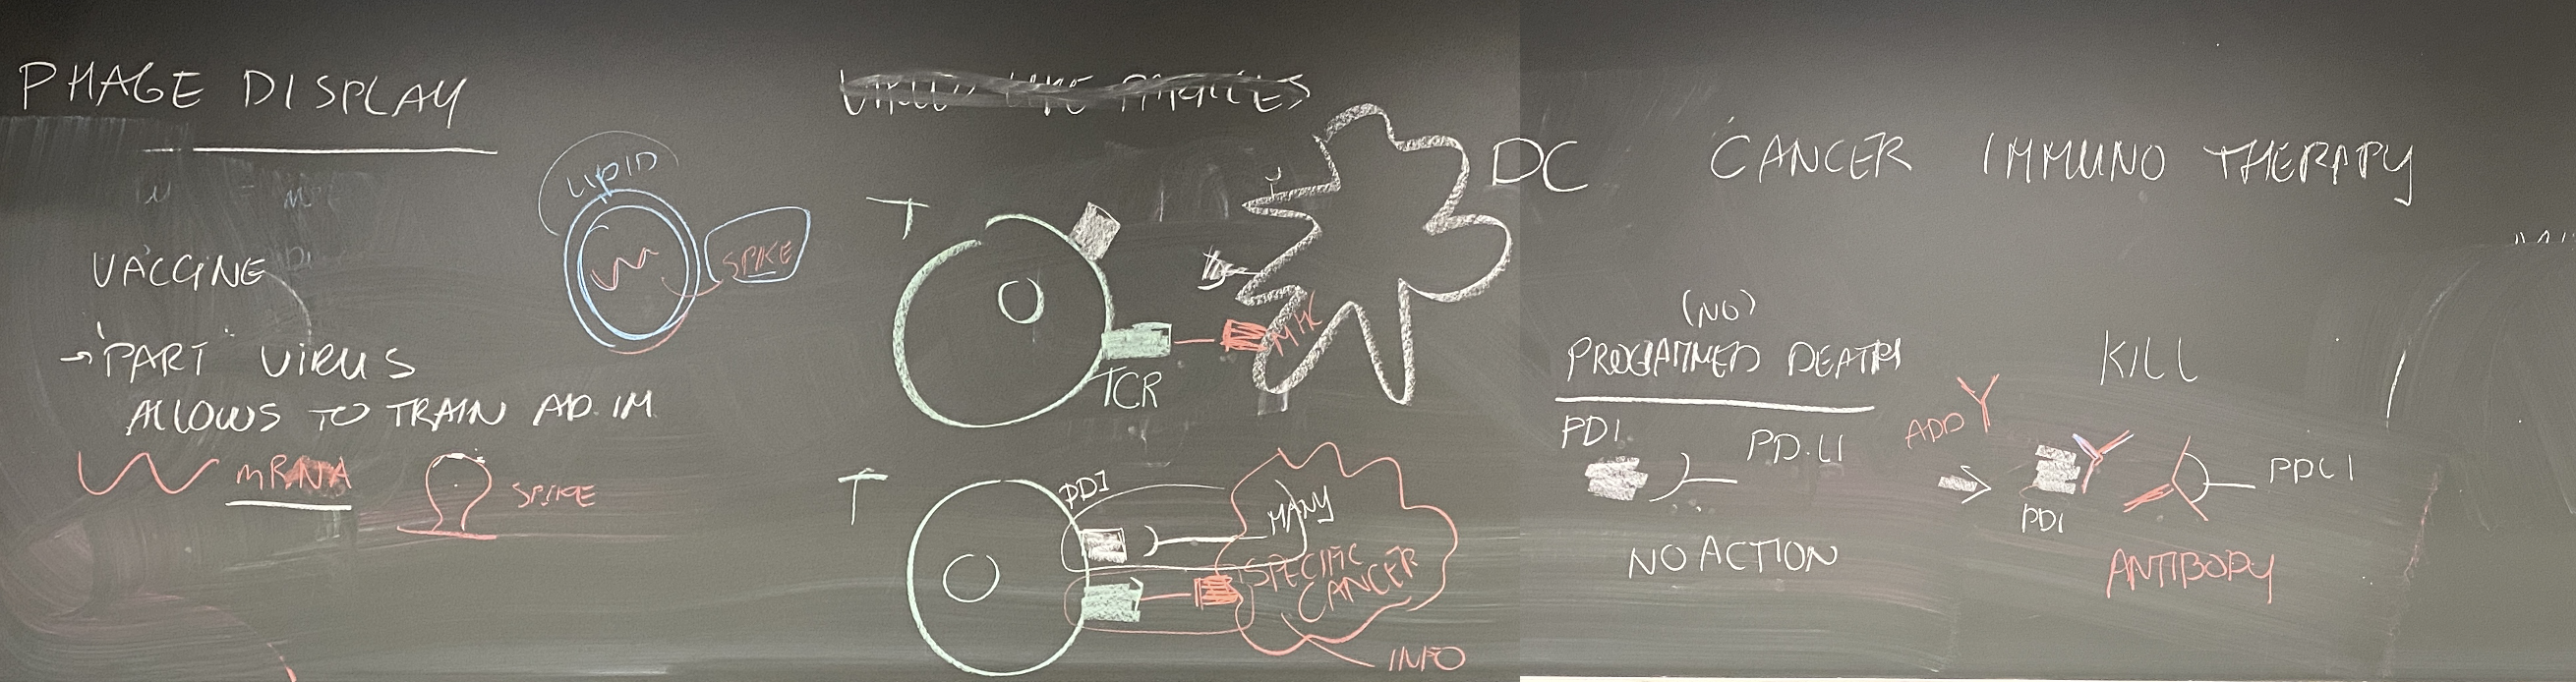 PHAGE DISPLAY
VACCINE
→ PART VIRUS
ALLOWS TO TRAIN AD. IM
mRNA
SPIKE
LIPID
SPIKE
LIKE PARTICLES
T
DC
MHC
TCR
T
PD1
MANY
SPECIFIC
CANCER
INFO
CANCER IMMUNO THERAPY
(NO)
PROGRAMMED DEATH
PD1
PD.L1
NO ACTION
ADD
KILL
PD1
PDL1
ANTIBODY